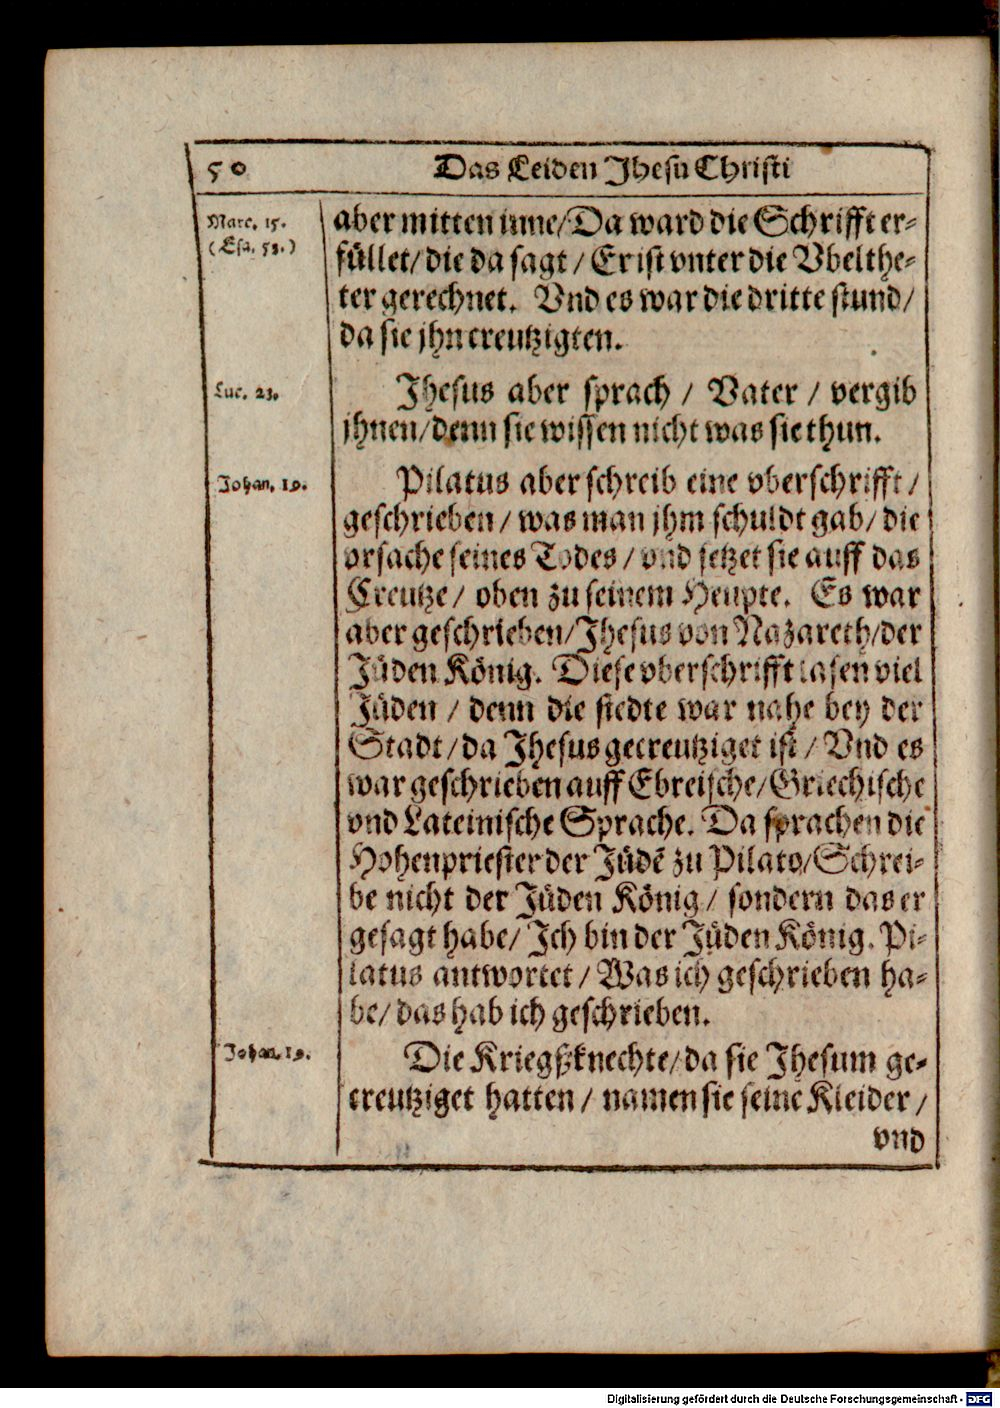 50 Das Leiden Jhesu Christi
Marc. 15.
(Esa. 53.)
aber mitten inne/Da ward die Schrifft er-
füllet/die da sagt/Er ist vnter die Vbelthe-
ter gerechnet. Vnd es war die dritte stund/
da sie jhn creutzigten.
Luc. 23.
Jhesus aber sprach / Vater / vergib
jhnen/denn sie wissen nicht was sie thun.
Johan. 19.
Pilatus aber schreib eine vberschrifft/
geschrieben/was man jhm schuldt gab/die
vrsache seines Todes/vnd setzet sie auff das
Creutze/ oben zu seinem Heupte. Es war
aber geschrieben/Jhesus von Nazareth/der
Jüden König. Diese vberschrifft lasen viel
Jüden / denn die stedte war nahe bey der
Stadt/da Jhesus gecreutziget ist/Vnd es
war geschrieben auff Ebreische/Griechische
vnd Lateinische Sprache. Da sprachen die
Hohenpriester der Jüdē zu Pilato/Schrei-
be nicht der Jüden König/ sondern das er
gesagt habe/Ich bin der Jüden König. Pi-
latus antwortet/Was ich geschrieben ha-
be/das hab ich geschrieben.
Johan. 19.
Die Kriegßknechte/da sie Jhesum ge-
creutziget hatten/ namen sie seine Kleider/
vnd
Digitalisierung gefördert durch die Deutsche Forschungsgemeinschaft - DFG